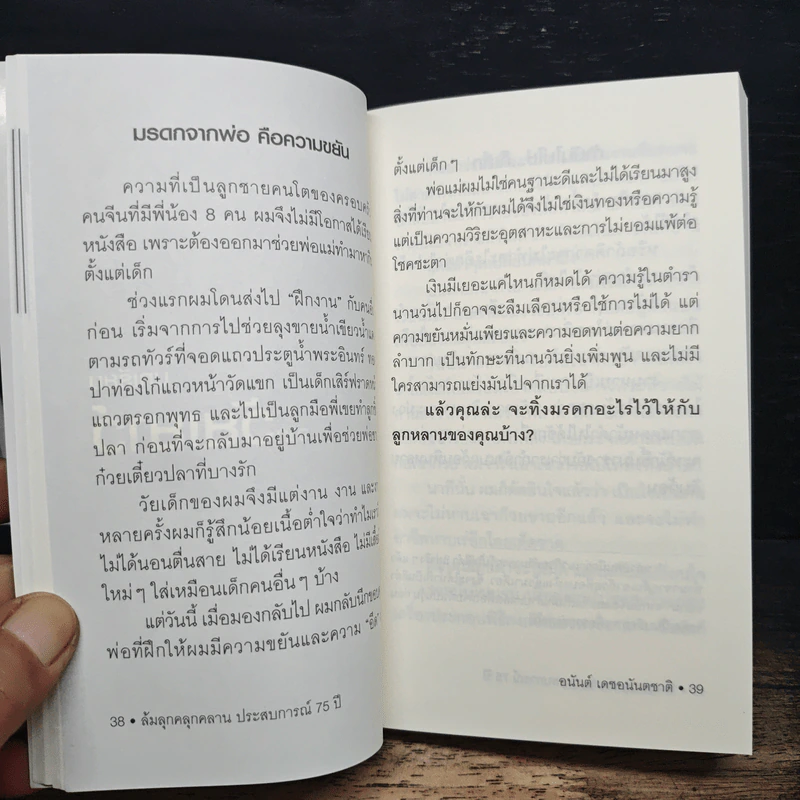 มรดกจากพ่อ คือความขยัน
ความที่เป็นลูกชายคนโตของครอบครัว
คนจีนที่มีพี่น้อง 8 คน ผมจึงไม่มีโอกาสได้เรียน
หนังสือ เพราะต้องออกมาช่วยพ่อแม่ทำมาหากิน
ตั้งแต่เด็ก
ช่วงแรกผมโดนส่งไป “ฝึกงาน” กับคนอื่น
ก่อน เริ่มจากการไปช่วยลุงขายน้ำเขียวน้ำแดง
ตามรถทัวร์ที่จอดแถวประตูน้ำพระอินทร์
ปาท่องโก๋แถวหน้าวัดแขก เป็นเด็กเสิร์ฟราดหน้า
แถวตรอกพุทธ และไปเป็นลูกมือพี่เขยทำลูกชิ้น
ปลา ก่อนที่จะกลับมาอยู่บ้านเพื่อช่วยพ่อขาย
ก๋วยเตี๋ยวปลาที่บางรัก
วัยเด็กของผมจึงมีแต่งาน งาน และ
หลายครั้งผมก็รู้สึกน้อยเนื้อต่ำใจว่าทำไมเรา
ไม่ได้นอนตื่นสาย ไม่ได้เรียนหนังสือ ไม่มีเสื้อ
ใหม่ๆ ใส่เหมือนเด็กคนอื่นๆ บ้าง
แต่วันนี้ เมื่อมองกลับไป ผมกลับนึกขอบคุณ
พ่อที่ฝึกให้ผมมีความขยันและความ “อึด”
38 • ล้มลุกคลุกคลาน ประสบการณ์ 75 ปี
ตั้งแต่เด็กๆ
พ่อแม่ผมไม่ใช่คนฐานะดีและไม่ได้เรียนมาสูง
สิ่งที่ท่านจะให้กับผมได้จึงไม่ใช่เงินทองหรือความรู้
แต่เป็นความวิริยะอุตสาหะและการไม่ยอมแพ้ต่อ
โชคชะตา
เงินมีเยอะแค่ไหนก็หมดได้ ความรู้ในตำรา
นานวันไปก็อาจจะลืมเลือนหรือใช้การไม่ได้ แต่
ความขยันหมั่นเพียรและความอดทนต่อความยาก
ลำบาก เป็นทักษะที่นานวันยิ่งเพิ่มพูน และไม่มี
ใครสามารถแย่งมันไปจากเราได้
แล้วคุณล่ะ จะทิ้งมรดกอะไรไว้ให้กับ
ลูกหลานของคุณบ้าง?
อนันต์ เดชอนันตชาติ • 39